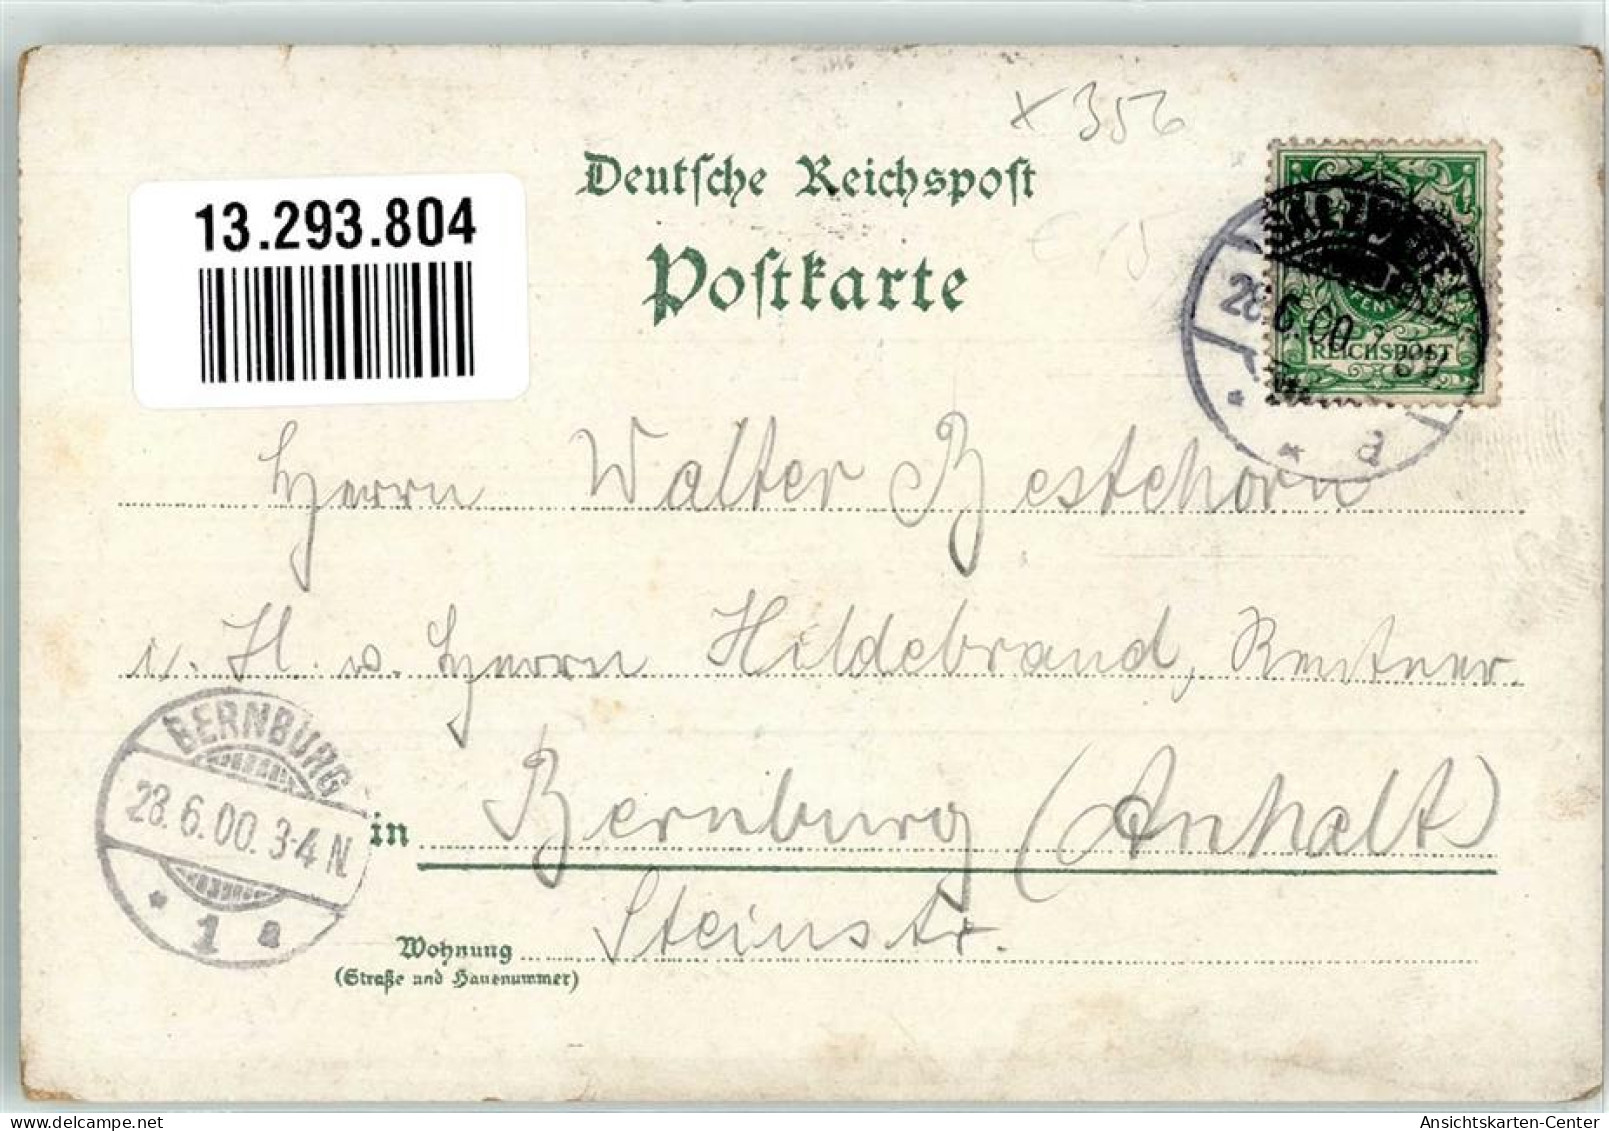 x 356
Deutsche Reichspost
Postkarte
13.293.804
€ 15
SALZWEDEL
28.6.00
REICHSPOST
* * a
Herrn Walter Bestehorn
H. w. Herrn Hildebrand, Rentner.
BERNBURG
28.6.00.3-4 N
* 1 a
in Bernburg (Anhalt)
Wohnung Steinstr.
(Straße und Hausnummer)
Ansichtskarten-Center
delcampe.net